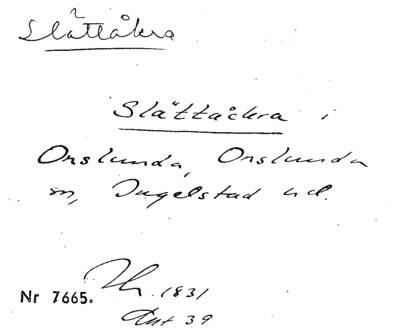 Slättåkra
Slättåckra i
Onslunda, Onslunda
sn, Ingelstad hd.
Nr 7665. 1831
Ant 39